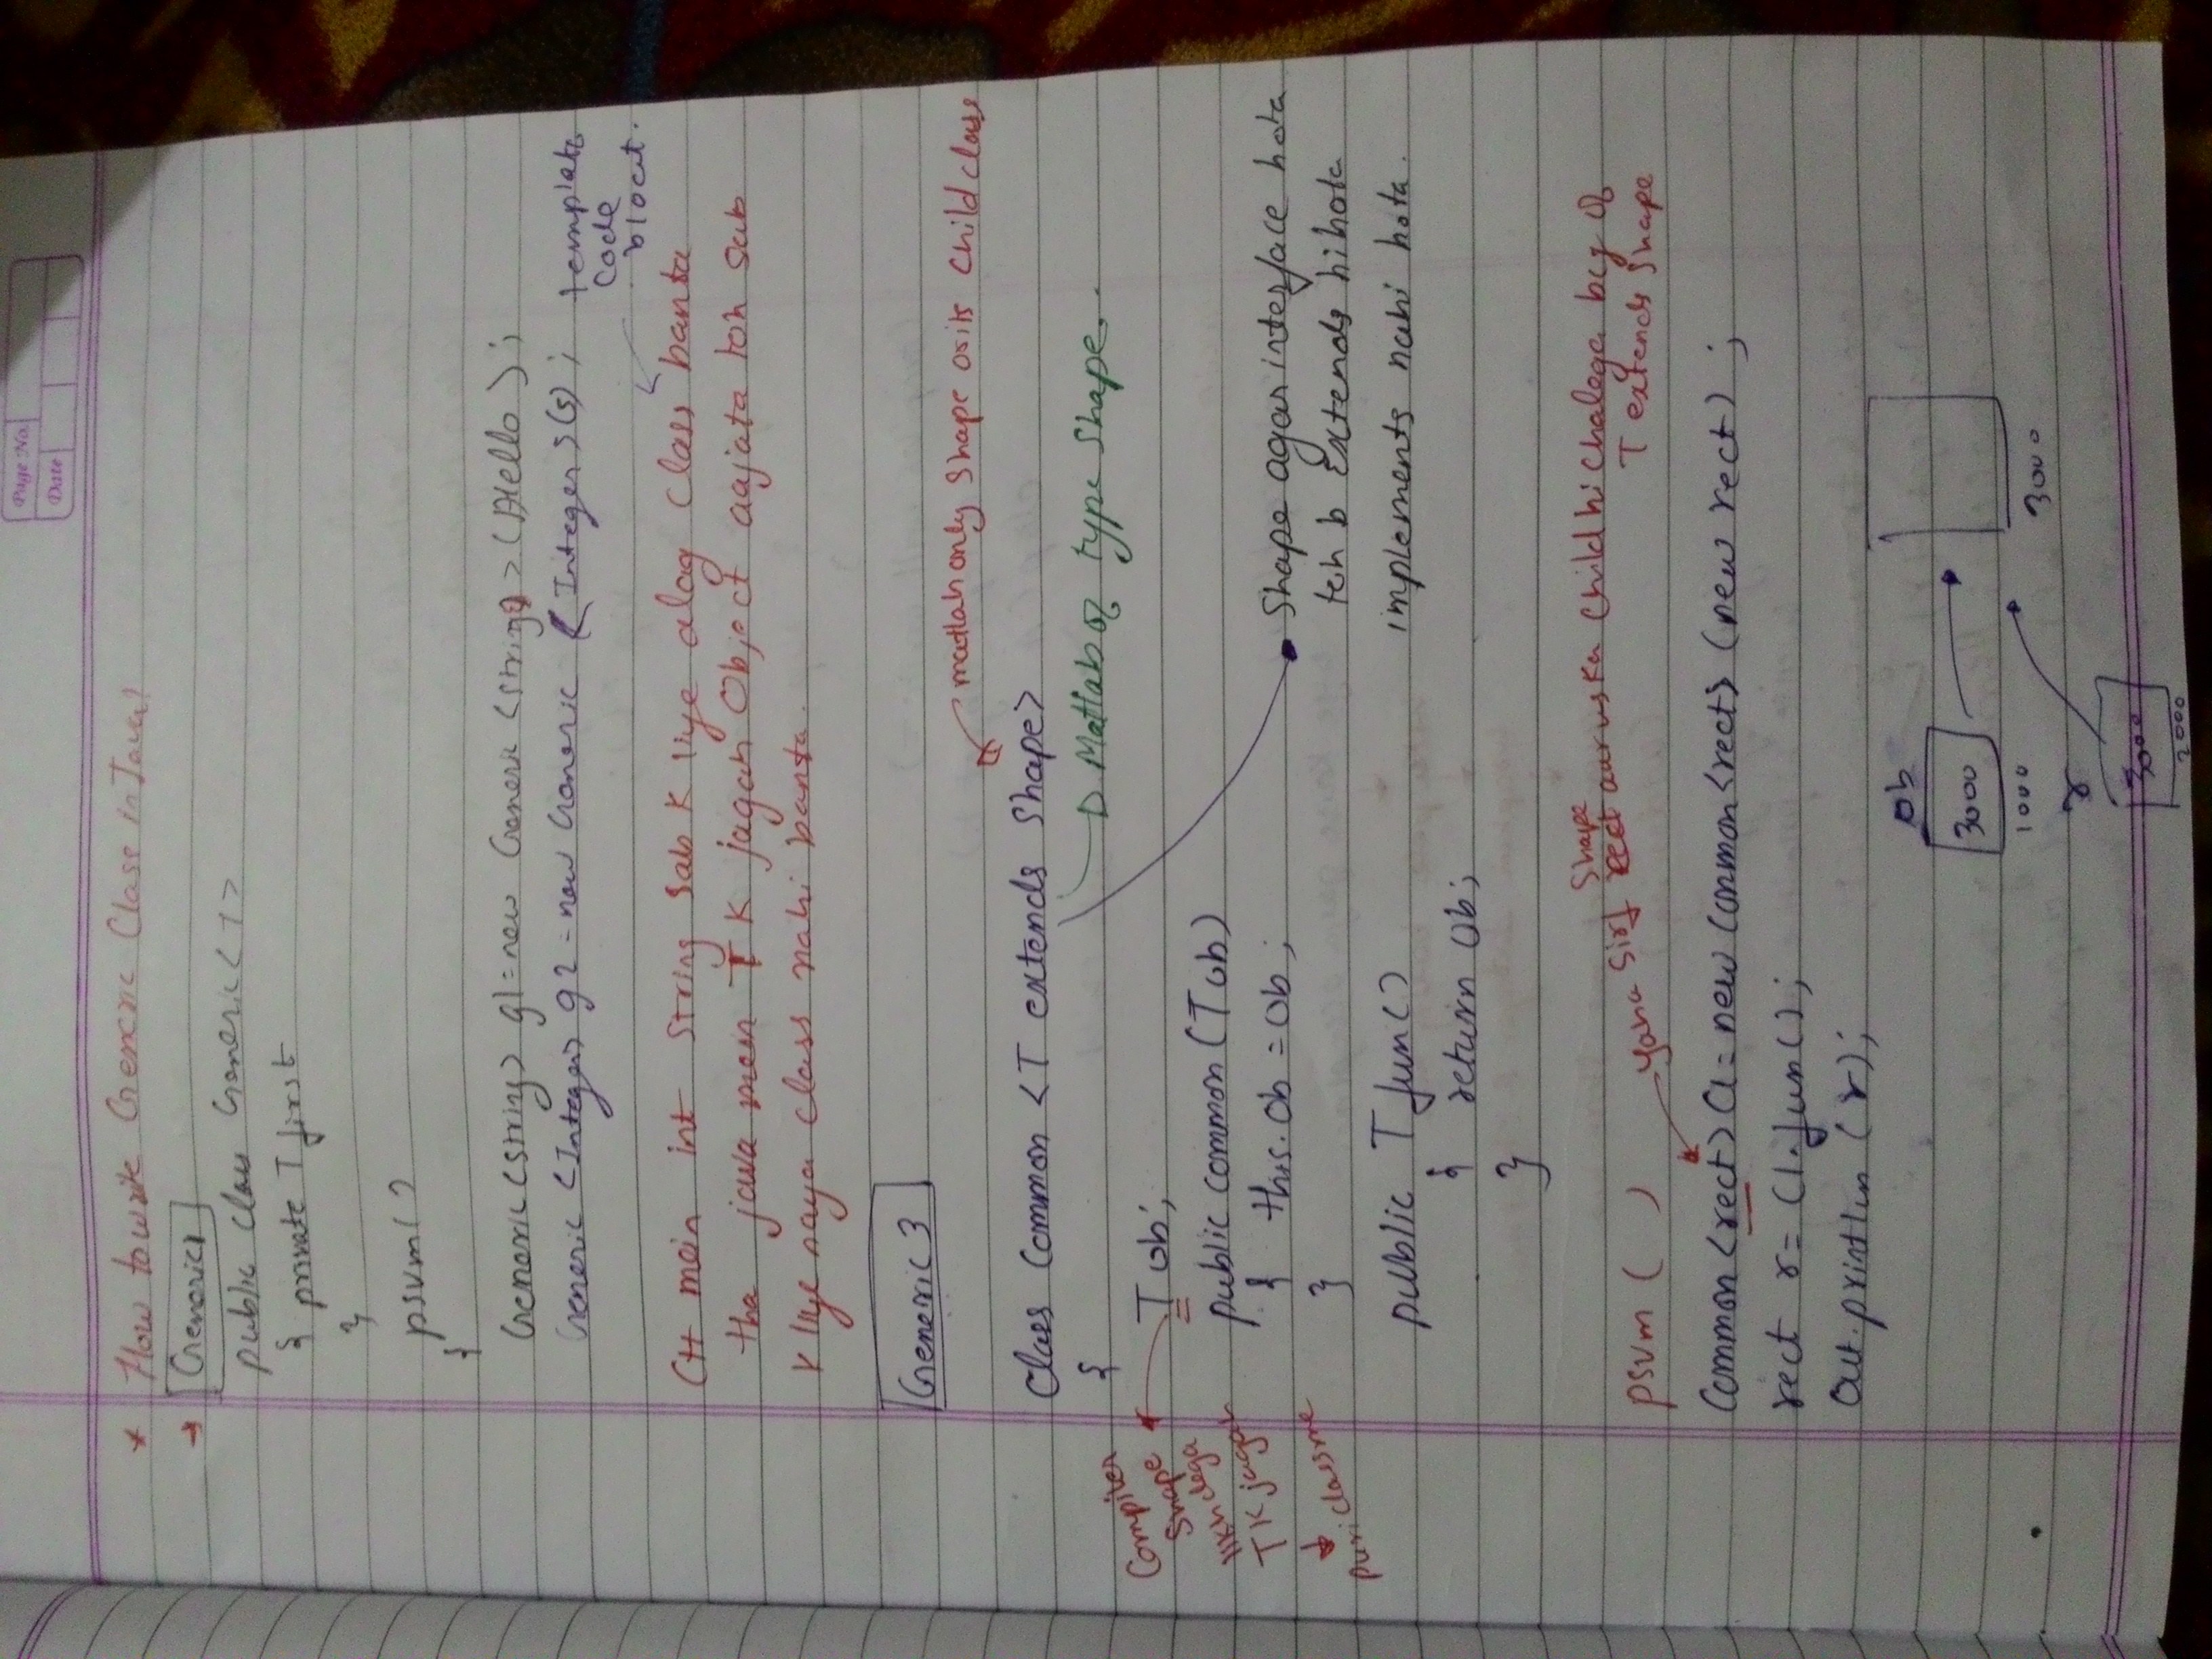 Page No.
Date
* How to write Generic Class in Java?
→ Generic1
public class Generic<T>
{ private T first
}
psvm( )
{
Generic<String> g1 = new Generic <String> (Hello );
Generic <Integer> g2 = new Generic < Integer >(5) ;
template
code
block.
C++ main int String sab K liye alag Class banta
tha java mein T K jagah Object aajata toh sab
K liye naya class nahi banta.
Generic 3
matlab only Shape or its Child class
Class Common <T extends Shape>
{
→ Matlab of type Shape.
Compiler
Shape
likh dega
T K jagah
↓
puri class me
T ob;
public common (T ob)
{ this.ob = ob ;
}
• Shape agar interface hota
toh b Extends hi hota
implements nahi hota.
public T fun()
{ return ob;
}
Shape
yaha sirf rect aur uska Child hi chalega bcz of
T extends Shape
psvm ( )
Common <rect> C1 = new Common<rect> (new rect) ;
rect r = C1.fun();
Out.println (r);
ob
3000
1000
3000
r
3000
2000